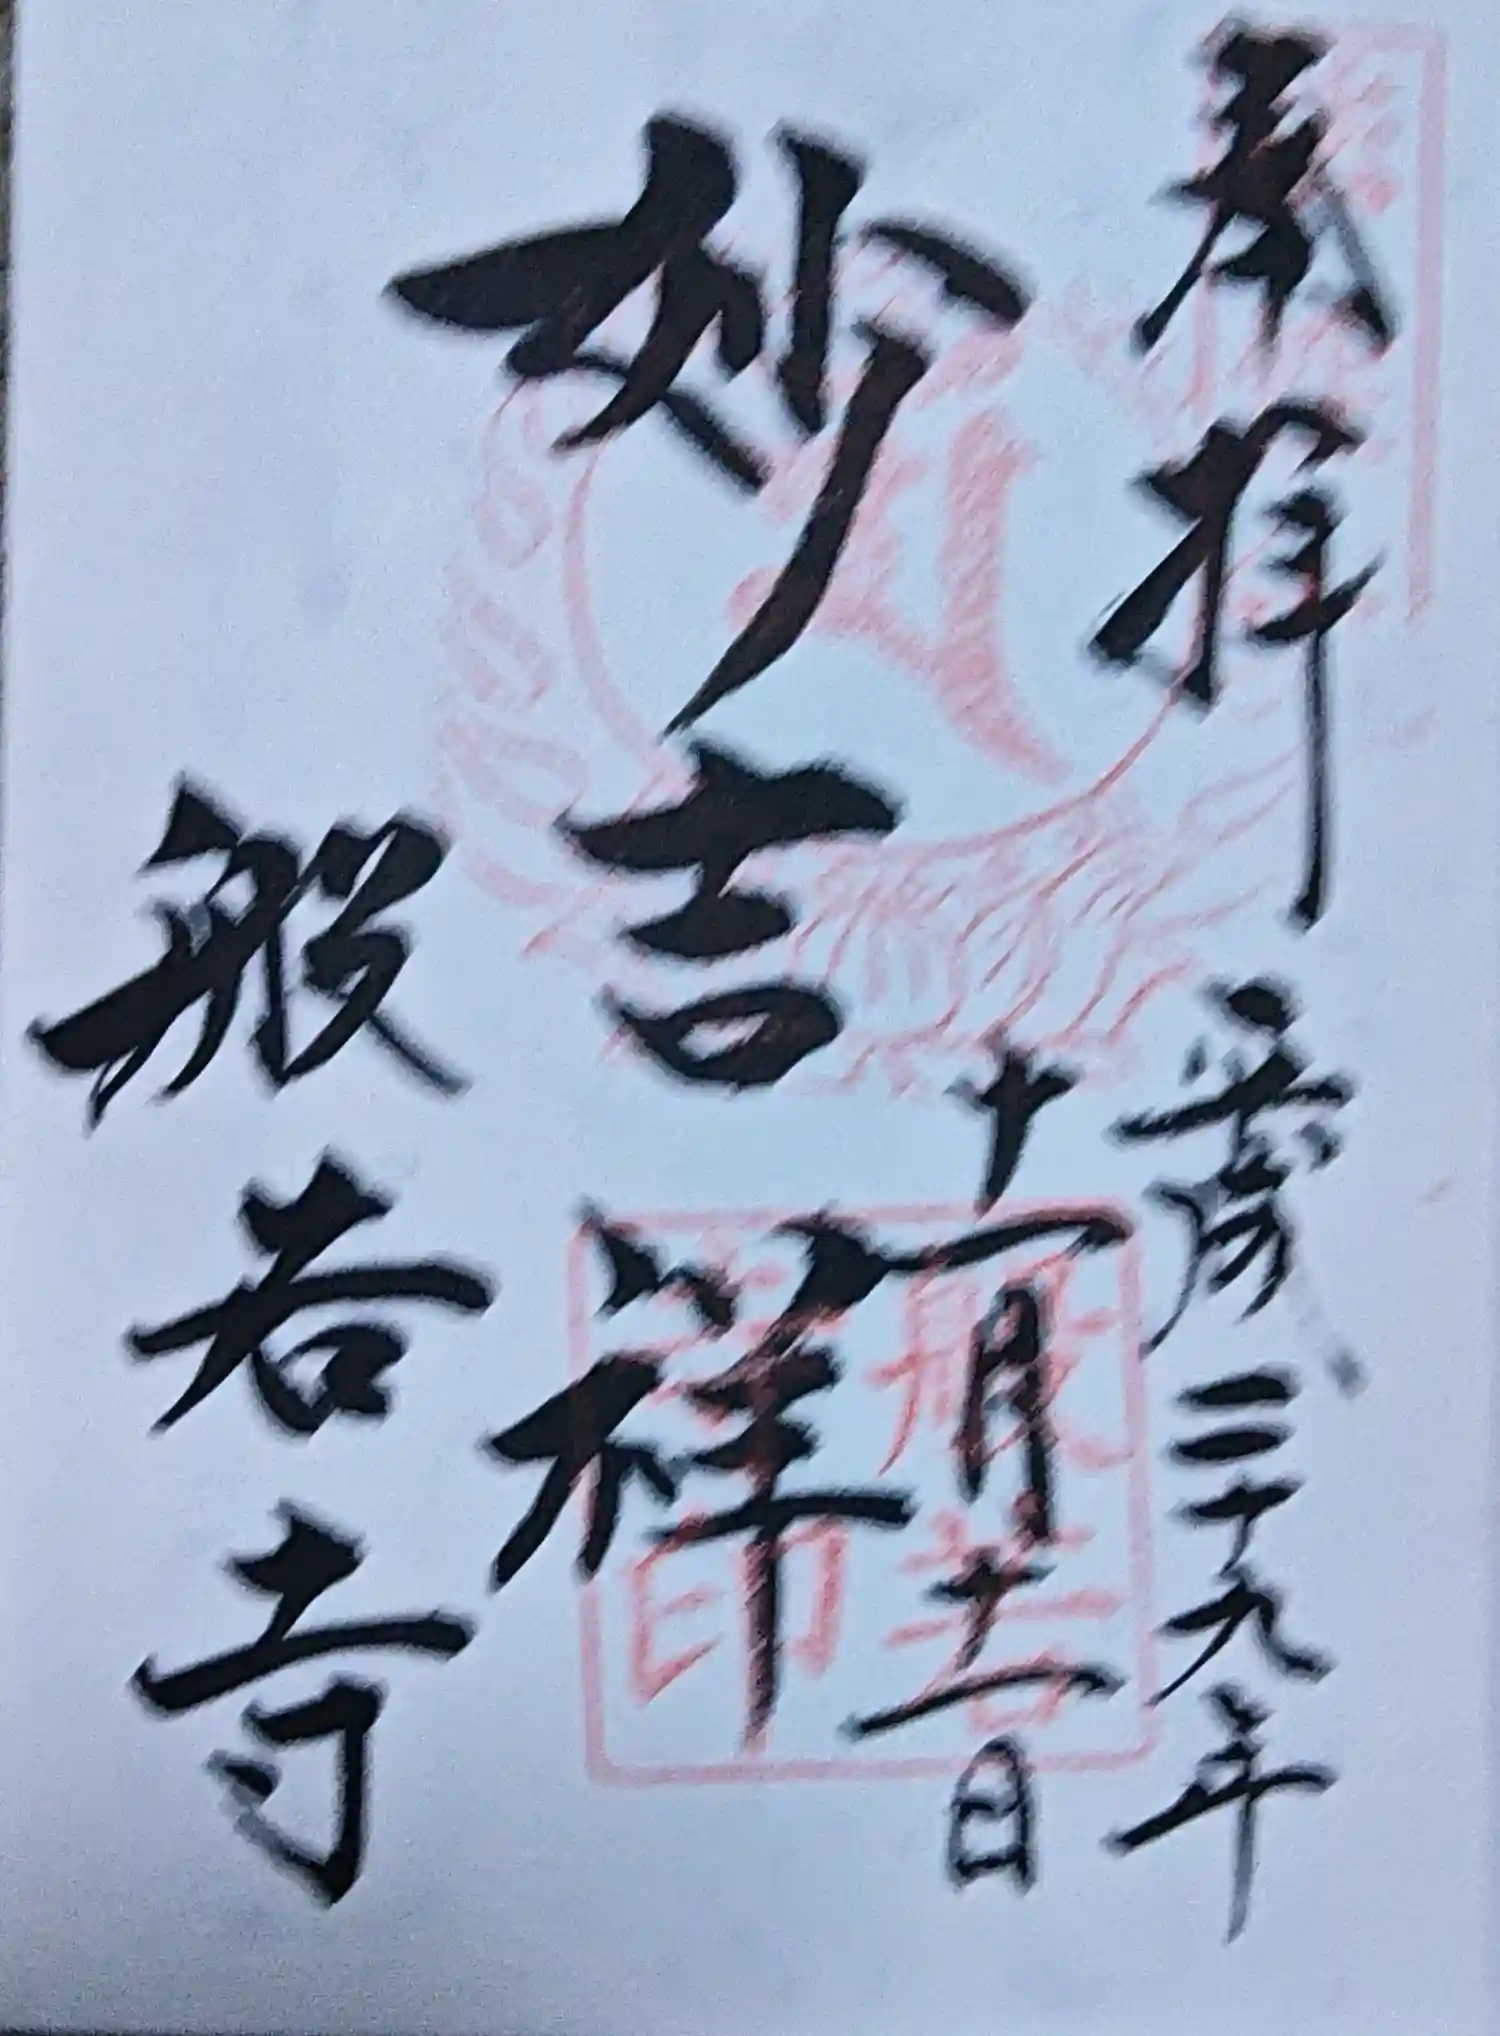 奉拝 平成二十九年
十一月十一日
妙吉祥
般若寺
般若
印